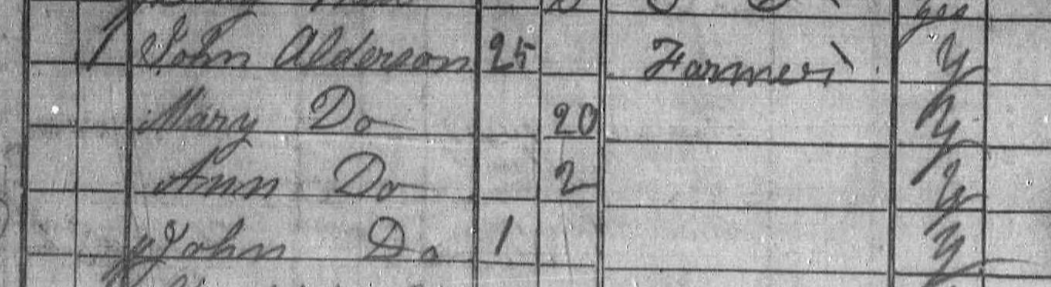 yes
1 John Alderson 25 Farmer Y
Mary Do 20 Y
Ann Do 2 Y
John Do 1 Y